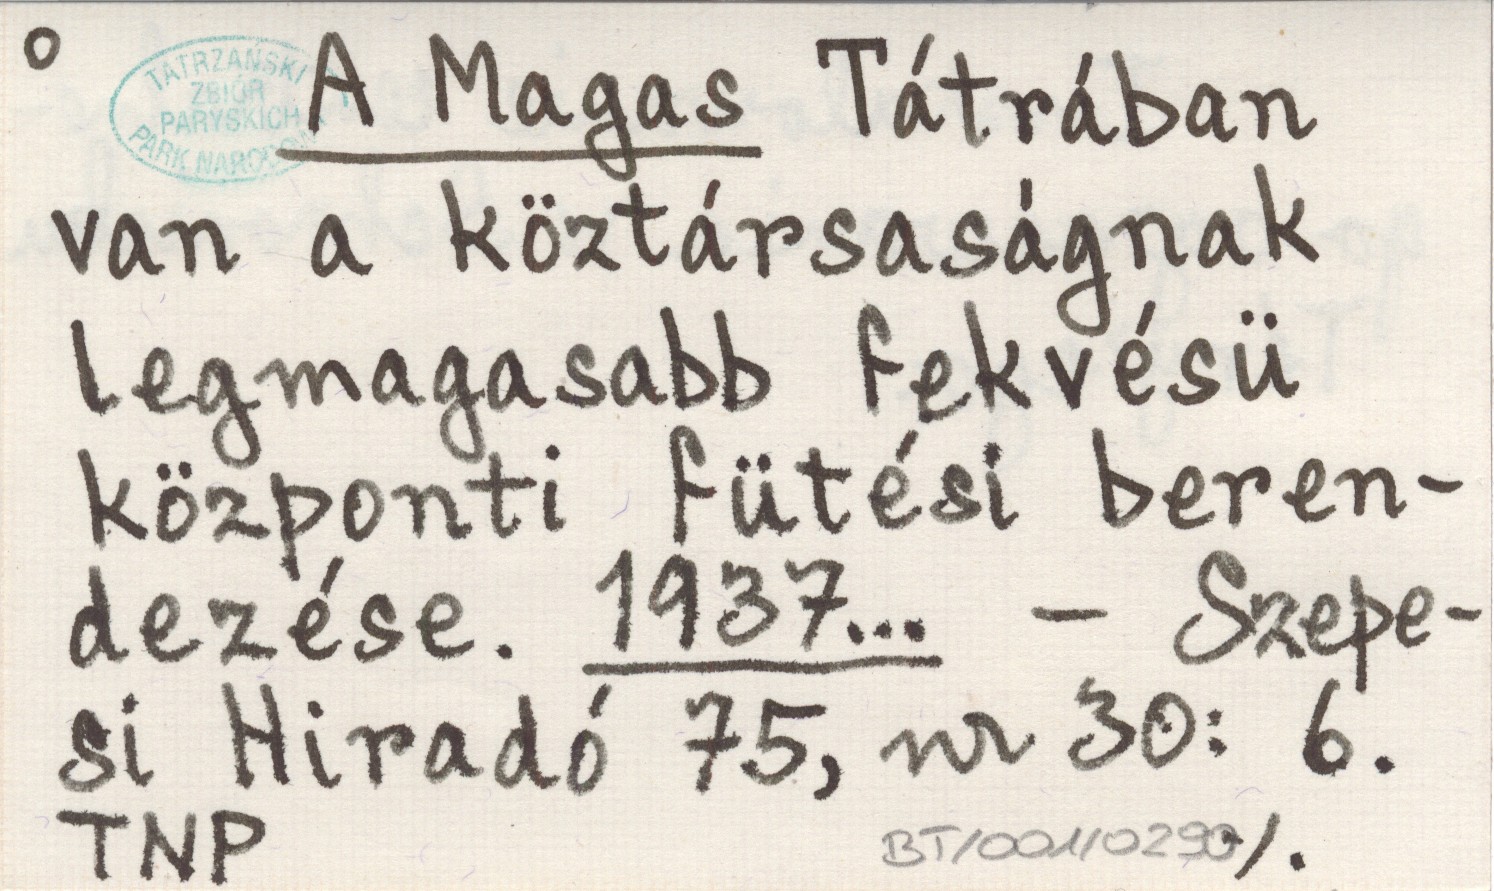 o
TATRZAŃSKI
ZBIÓR
PARYSKICH
PARK NARODOWY
A Magas Tátrában
van a köztársaságnak
legmagasabb fekvésü
központi fütési beren-
dezése. 1937... – Szepe-
si Hiradó 75, nr 30: 6.
TNP
BT/001/0290
·/.